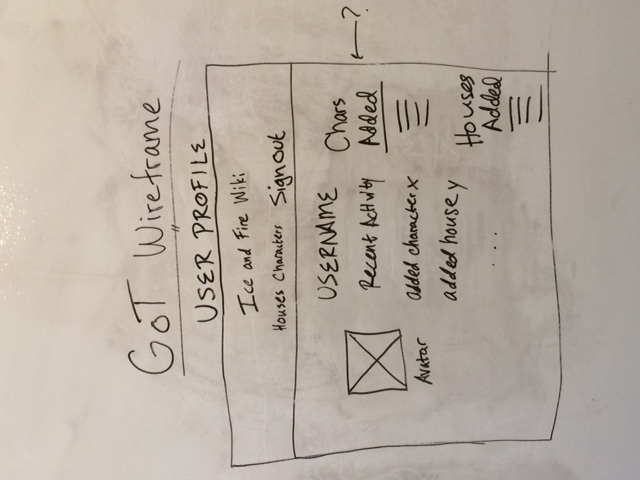 GoT Wireframe
USER PROFILE
Ice and Fire Wiki
Houses Characters Sign out
USERNAME
Recent Activity
added character x
added house y
. . .
Avatar
Chars
Added
?
Houses
Added